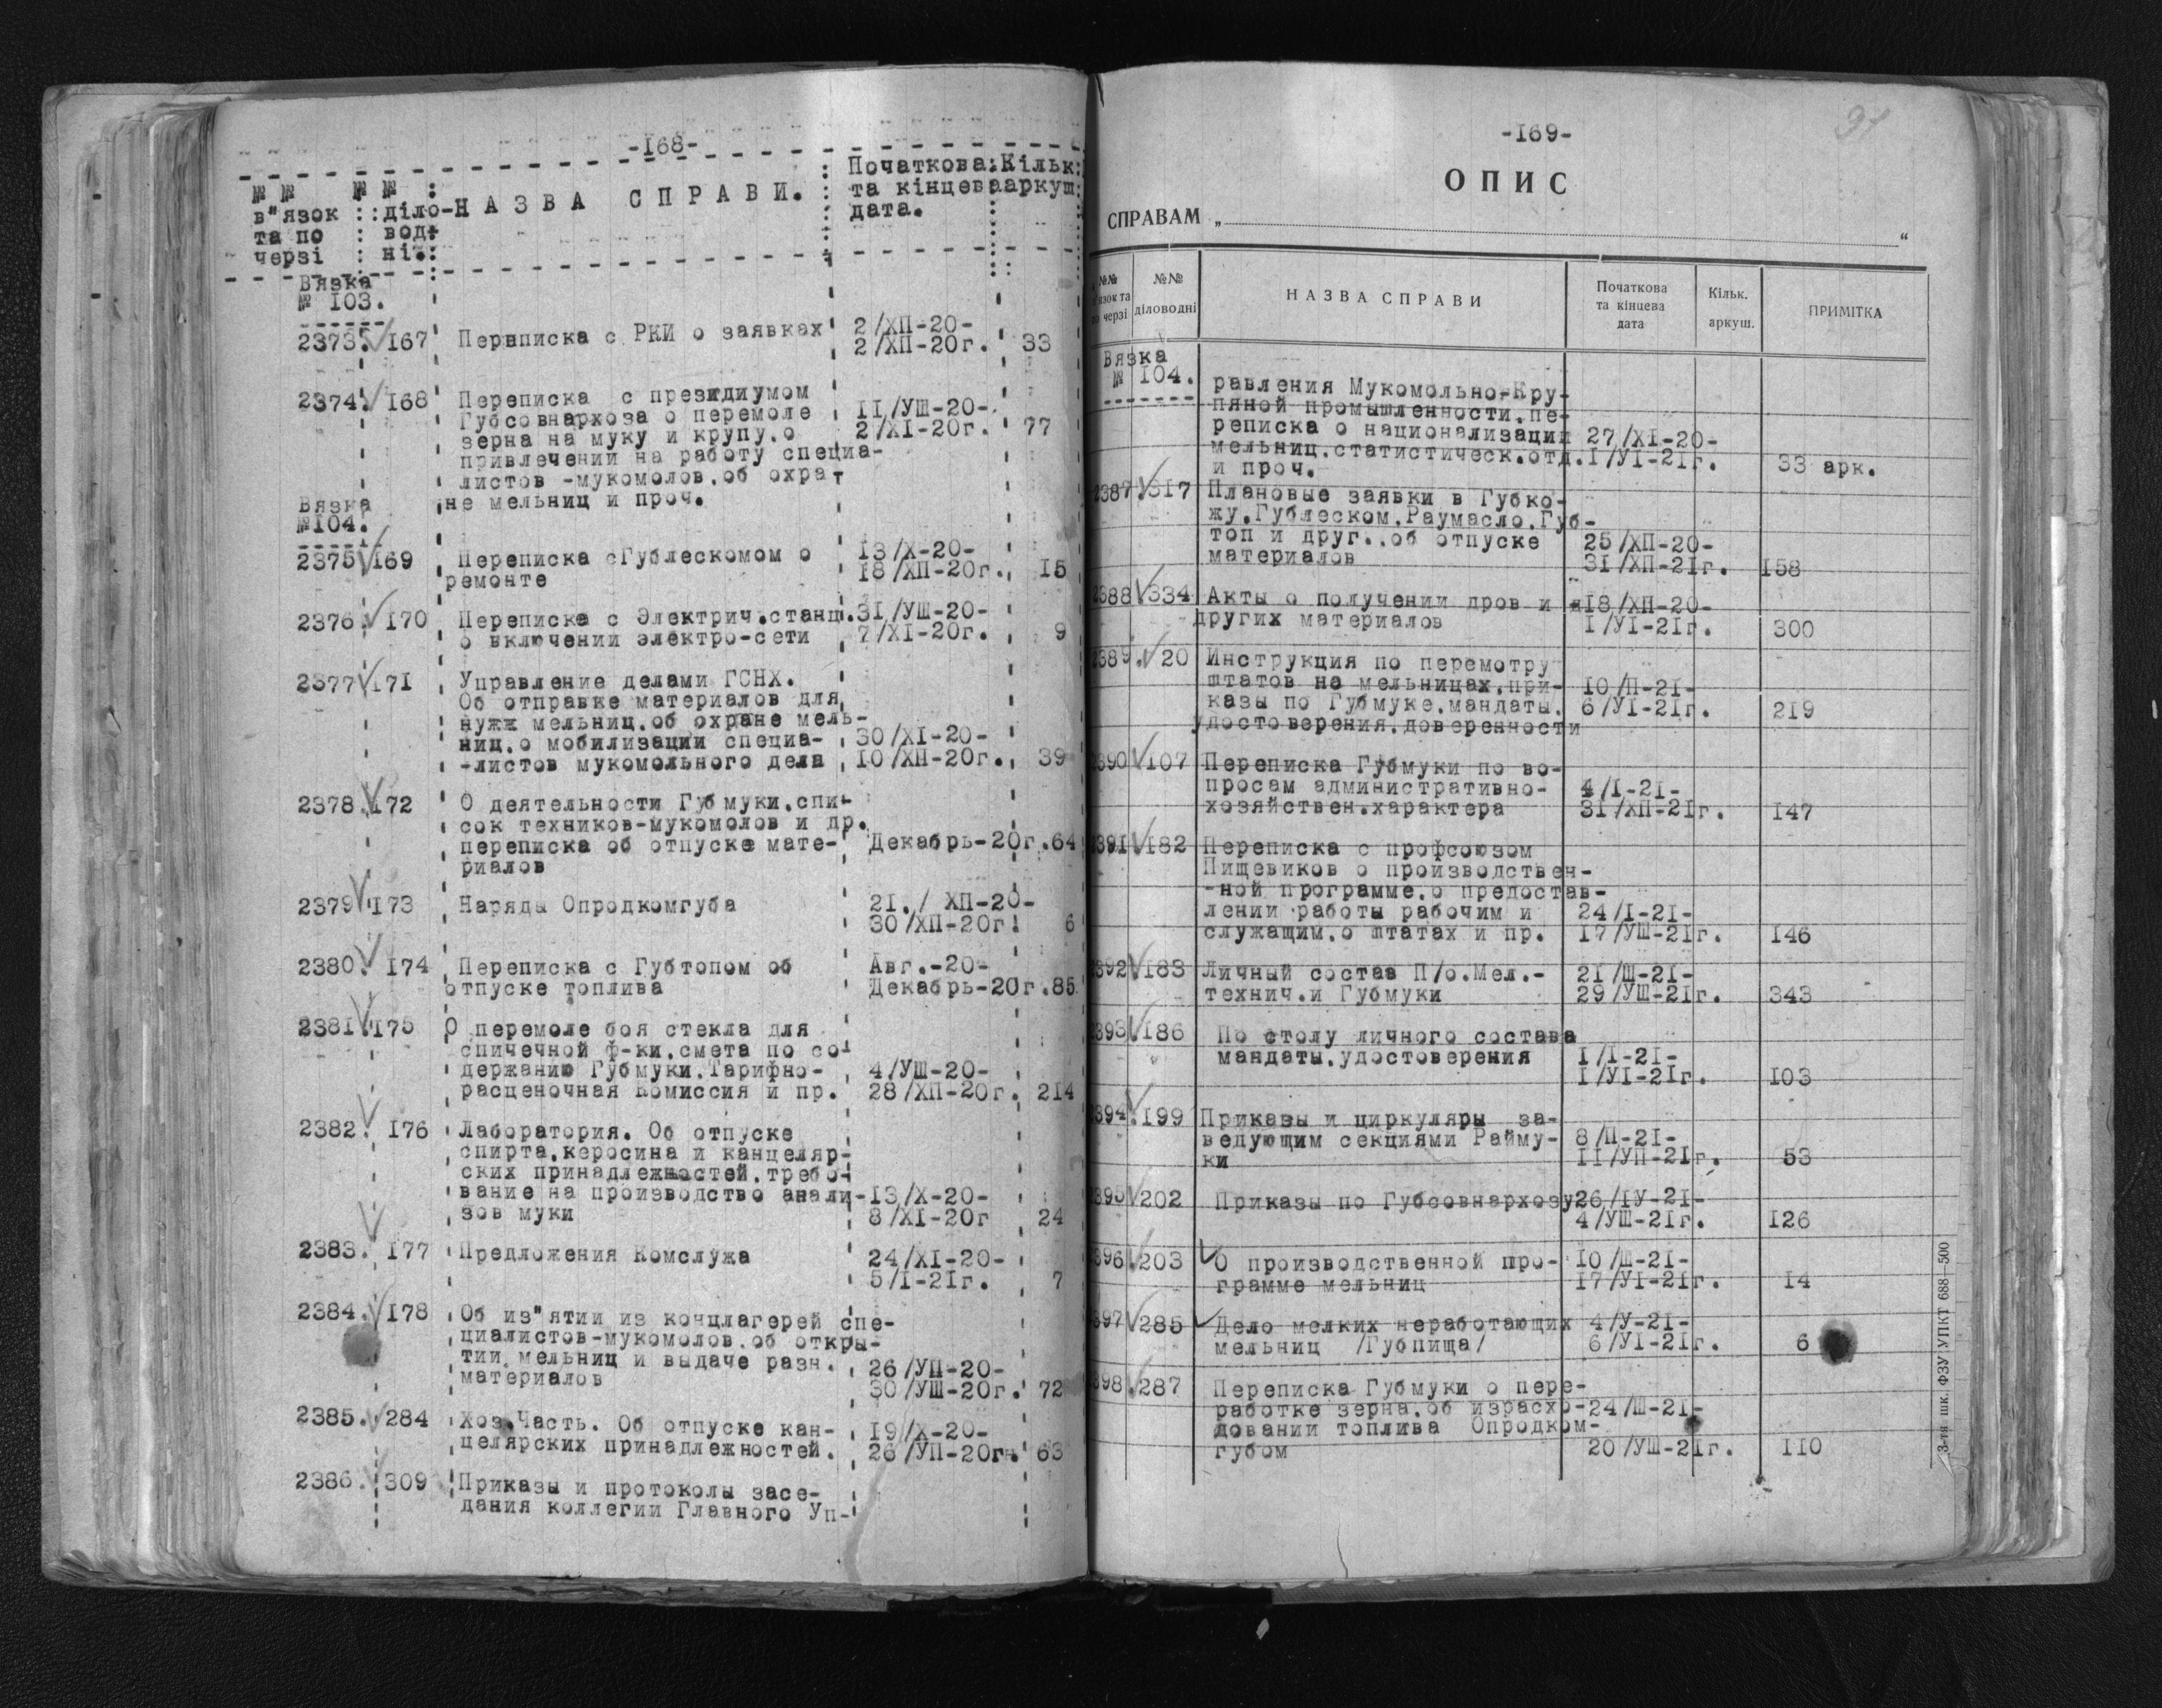 -168-
№ № № № Початкова Кільк
в"язок діло- НАЗВА СПРАВИ. та кінцева аркуш
та по вод- дата.
черзі ні.
Вязка
№ 103.
2373. 167 Переписка с РКИ о заявках 2/ХП-20-
2/ХП-20г. 33
2374. 168 Переписка с президиумом
Губсовнархоза о перемоле 11/УШ-20-
зерна на муку и крупу,о 2/XI-20г. 77
привлечении на работу специа-
листов -мукомолов,об охра-
Вязка не мельниц и проч.
№104.
2375 169 Переписка сГублескомом о 13/Х-20-
ремонте 18/ХП-20г. 15
2376. 170 Переписка с Электрич.станц. 31/УШ-20-
о включении электро-сети 7/XI-20г. 9
2377 171 Управление делами ГСНХ.
Об отправке материалов для
нужж мельниц,об охране мель-
ниц,о мобилизации специа- 30/XI-20-
-листов мукомольного дела 10/ХП-20г. 39
2378. 172 О деятельности Губмуки,спи-
сок техников-мукомолов и др.
переписка об отпуске мате- Декабрь-20г. 64
риалов
2379 173 Наряды Опродкомгуба 21./ ХП-20-
30/ХП-20г. 6
2380. 174 Переписка с Губтопом об Авг.-20-
отпуске топлива Декабрь-20г. 85
2381. 175 О перемоле боя стекла для
спичечной ф-ки,смета по со-
держанию Губмуки.Тарифно- 4/УШ-20-
расценочная Комиссия и пр. 28/ХП-20г. 214
2382. 176 Лаборатория. Об отпуске
спирта,керосина и канцеляр-
ских принадлежностей,требо-
вание на производство анали- 13/Х-20-
зов муки 8/XI-20г 24
2383. 177 Предложения Комслужа 24/XI-20-
5/I-21г. 7
2384. 178 Об из"ятии из концлагерей спе-
циалистов-мукомолов,об откры-
тии мельниц и выдаче разн. 26/УП-20-
материалов 30/УШ-20г. 72
2385. 284 Хоз.Часть. Об отпуске кан- 19/Х-20-
целярских принадлежностей. 26/УП-20г. 63
2386. 309 Приказы и протоколы засе-
дания коллегии Главного Уп-
-169-
ОПИС
СПРАВАМ „ “
№№ №№ НАЗВА СПРАВИ Початкова Кільк. ПРИМІТКА
язок та діловодні та кінцева аркуш.
по черзі дата
Вязка
№ 104. равления Мукомольно-Кру-
пяной промышленности,пе-
реписка о национализации 27/XI-20-
мельниц,статистическ.отд. 1/УI-21г. 33 арк.
и проч.
2387. 317 Плановые заявки в Губко-
жу,Гублеском,Раумасло,Губ-
топ и друг..об отпуске 25/ХП-20-
материалов 31/ХП-21г. 158
2388 334 Акты о получении дров и 18/ХП-20-
других материалов 1/УI-21г. 300
2389. 20 Инструкция по перемотру
штатов на мельницах,при- 10/П-21-
казы по Губмуке,мандаты, 6/УI-21г. 219
удостоверения,доверенности
2390 107 Переписка Губмуки по во-
просам административно- 4/I-21-
хозяйствен.характера 31/ХП-21г. 147
2391 182 Переписка с профсоюзом
Пищевиков о производствен-
-ной программе,о предостав-
лении работы рабочим и 24/I-21-
служащим,о штатах и пр. 17/УШ-21г. 146
2392 183 Личный состав П/о.Мел.- 21/Ш-21-
технич.и Губмуки 29/УШ-21г. 343
2393. 186 По столу личного состава
мандаты,удостоверения 1/I-21-
1/УI-21г. 103
2394. 199 Приказы и циркуляры за-
ведующим секциями Райму- 8/П-21-
ки 11/УП-21г. 53
2395 202 Приказы по Губсовнархозу 26/IУ-21-
4/УШ-21г. 126
2396. 203 О производственной про- 10/Ш-21-
грамме мельниц 17/УI-21г. 14
2397 285 Дело мелких неработающих 4/У-21-
мельниц /Губпища/ 6/УI-21г. 6
2398. 287 Переписка Губмуки о пере-
работке зерна,об израсхо- 24/Ш-21-
довании топлива Опродком-
губом 20/УШ-21г. 110
3-тя шк. ФЗУ УПКТ 688—500